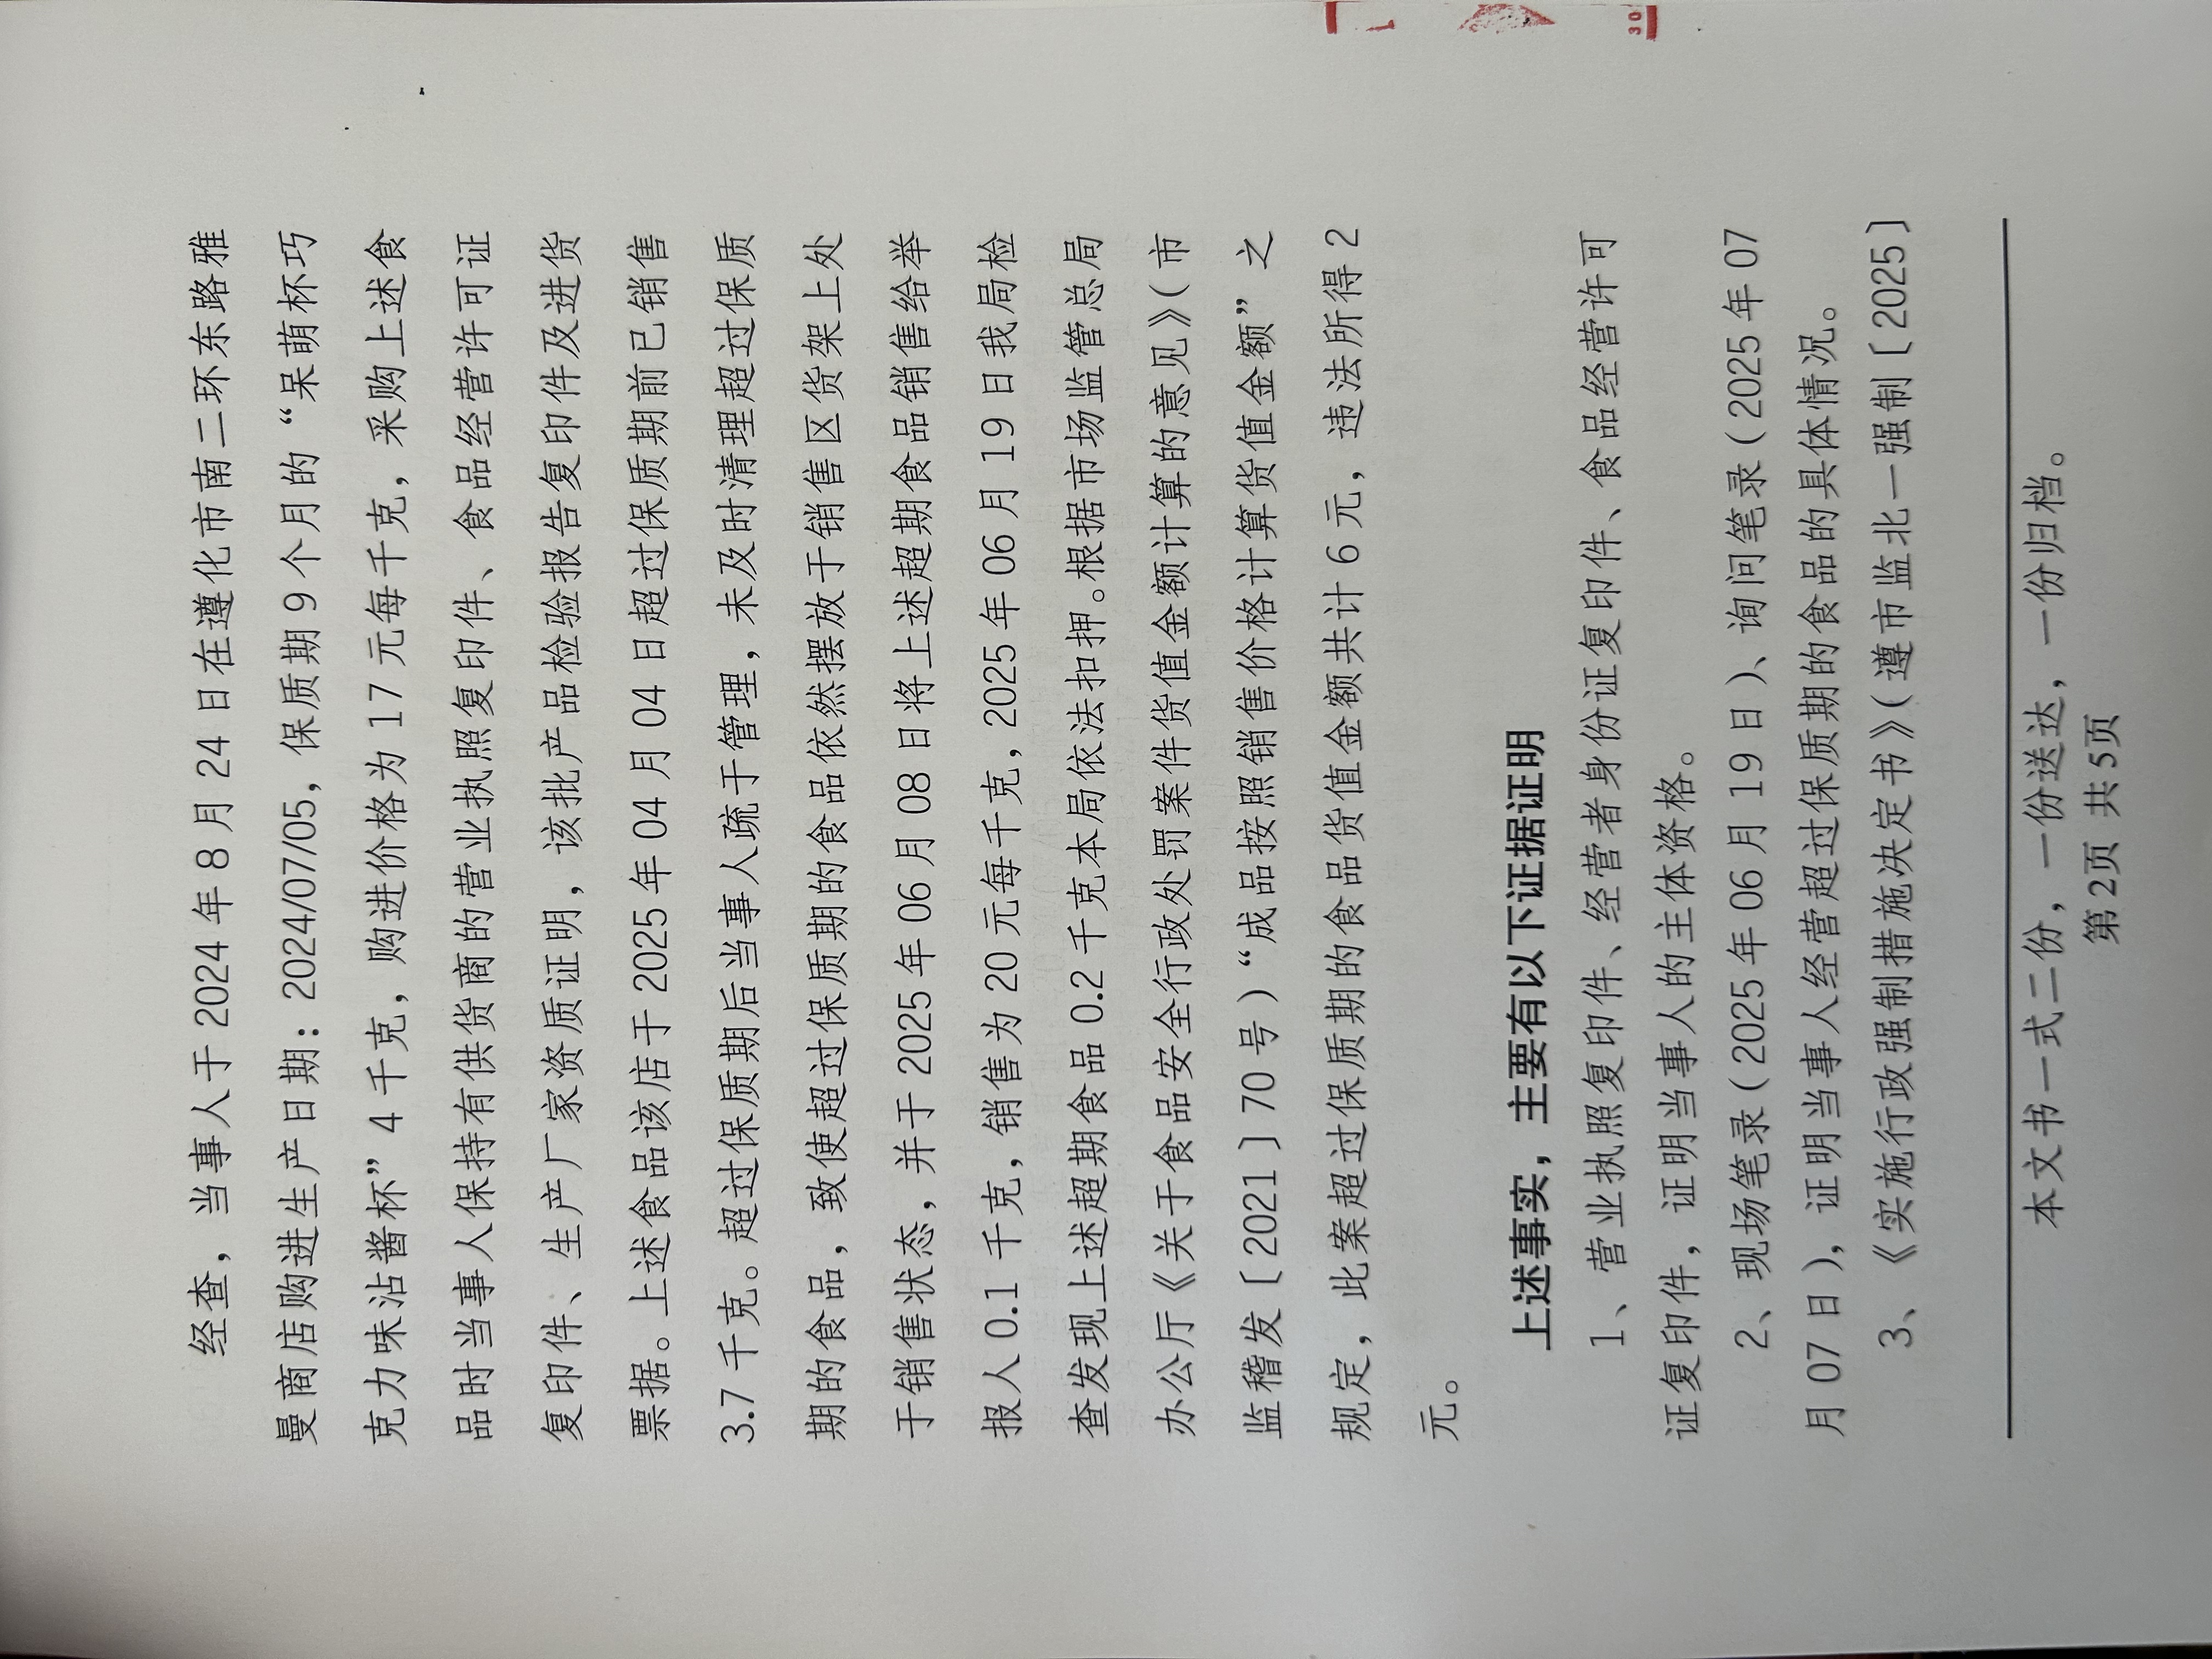 经查，当事人于 2024 年 8 月 24 日在遵化市南二环东路雅
曼商店购进生产日期：2024/07/05，保质期 9 个月的“呆萌杯巧
克力味沾酱杯”4 千克，购进价格为 17 元每千克，采购上述食
品时当事人保持有供货商的营业执照复印件、食品经营许可证
复印件、生产厂家资质证明，该批产品检验报告复印件及进货
票据。上述食品该店于 2025 年 04 月 04 日超过保质期前已销售
3.7 千克。超过保质期后当事人疏于管理，未及时清理超过保质
期的食品，致使超过保质期的食品依然摆放于销售区货架上处
于销售状态，并于 2025 年 06 月 08 日将上述超期食品销售给举
报人 0.1 千克，销售为 20 元每千克，2025 年 06 月 19 日我局检
查发现上述超期食品 0.2 千克本局依法扣押。根据市场监管总局
办公厅《关于食品安全行政处罚案件货值金额计算的意见》（市
监稽发〔2021〕70 号）“成品按照销售价格计算货值金额”之
规定，此案超过保质期的食品货值金额共计 6 元，违法所得 2
元。
上述事实，主要有以下证据证明
1、营业执照复印件、经营者身份证复印件、食品经营许可
证复印件，证明当事人的主体资格。
2、现场笔录（2025 年 06 月 19 日）、询问笔录（2025 年 07
月 07 日），证明当事人经营超过保质期的食品的具体情况。
3、《实施行政强制措施决定书》（遵市监北一强制〔2025〕
本文书一式二份，一份送达，一份归档。
第 2页 共 5页